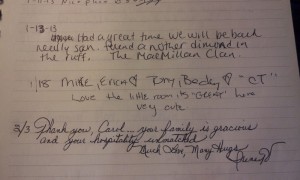 1-13-13
Had a great time we will be back
really son. Found another dimond in
the ruff. The MacMillan Clan.
1/18 Mike, Erica ♡ Tony, Becky ♡ "CT"
Love the little room its "GREAT" here
very cute
2/3 Thank you, Carol your family is gracious
and your hospitality unmatched
Much Love, Many Hugs